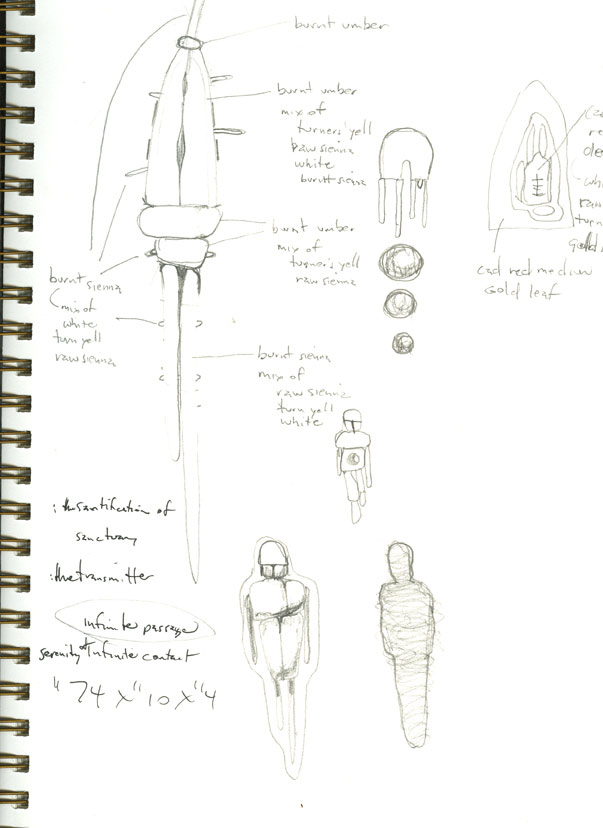 burnt umber
burnt umber
mix of
turners yell
raw sienna
white
burnt sienna
burnt umber
mix of
turner's yell
raw sienna
burnt
sienna
mix of
white
turn yell
raw sienna
burnt sienna
mix of
raw sienna
turn yell
white
cad red medium
Gold leaf
raw
: the
of
sanctuary
: the transmitter
infinite passage
serenity of Infinite contact
" 74 x " 10 x " 4